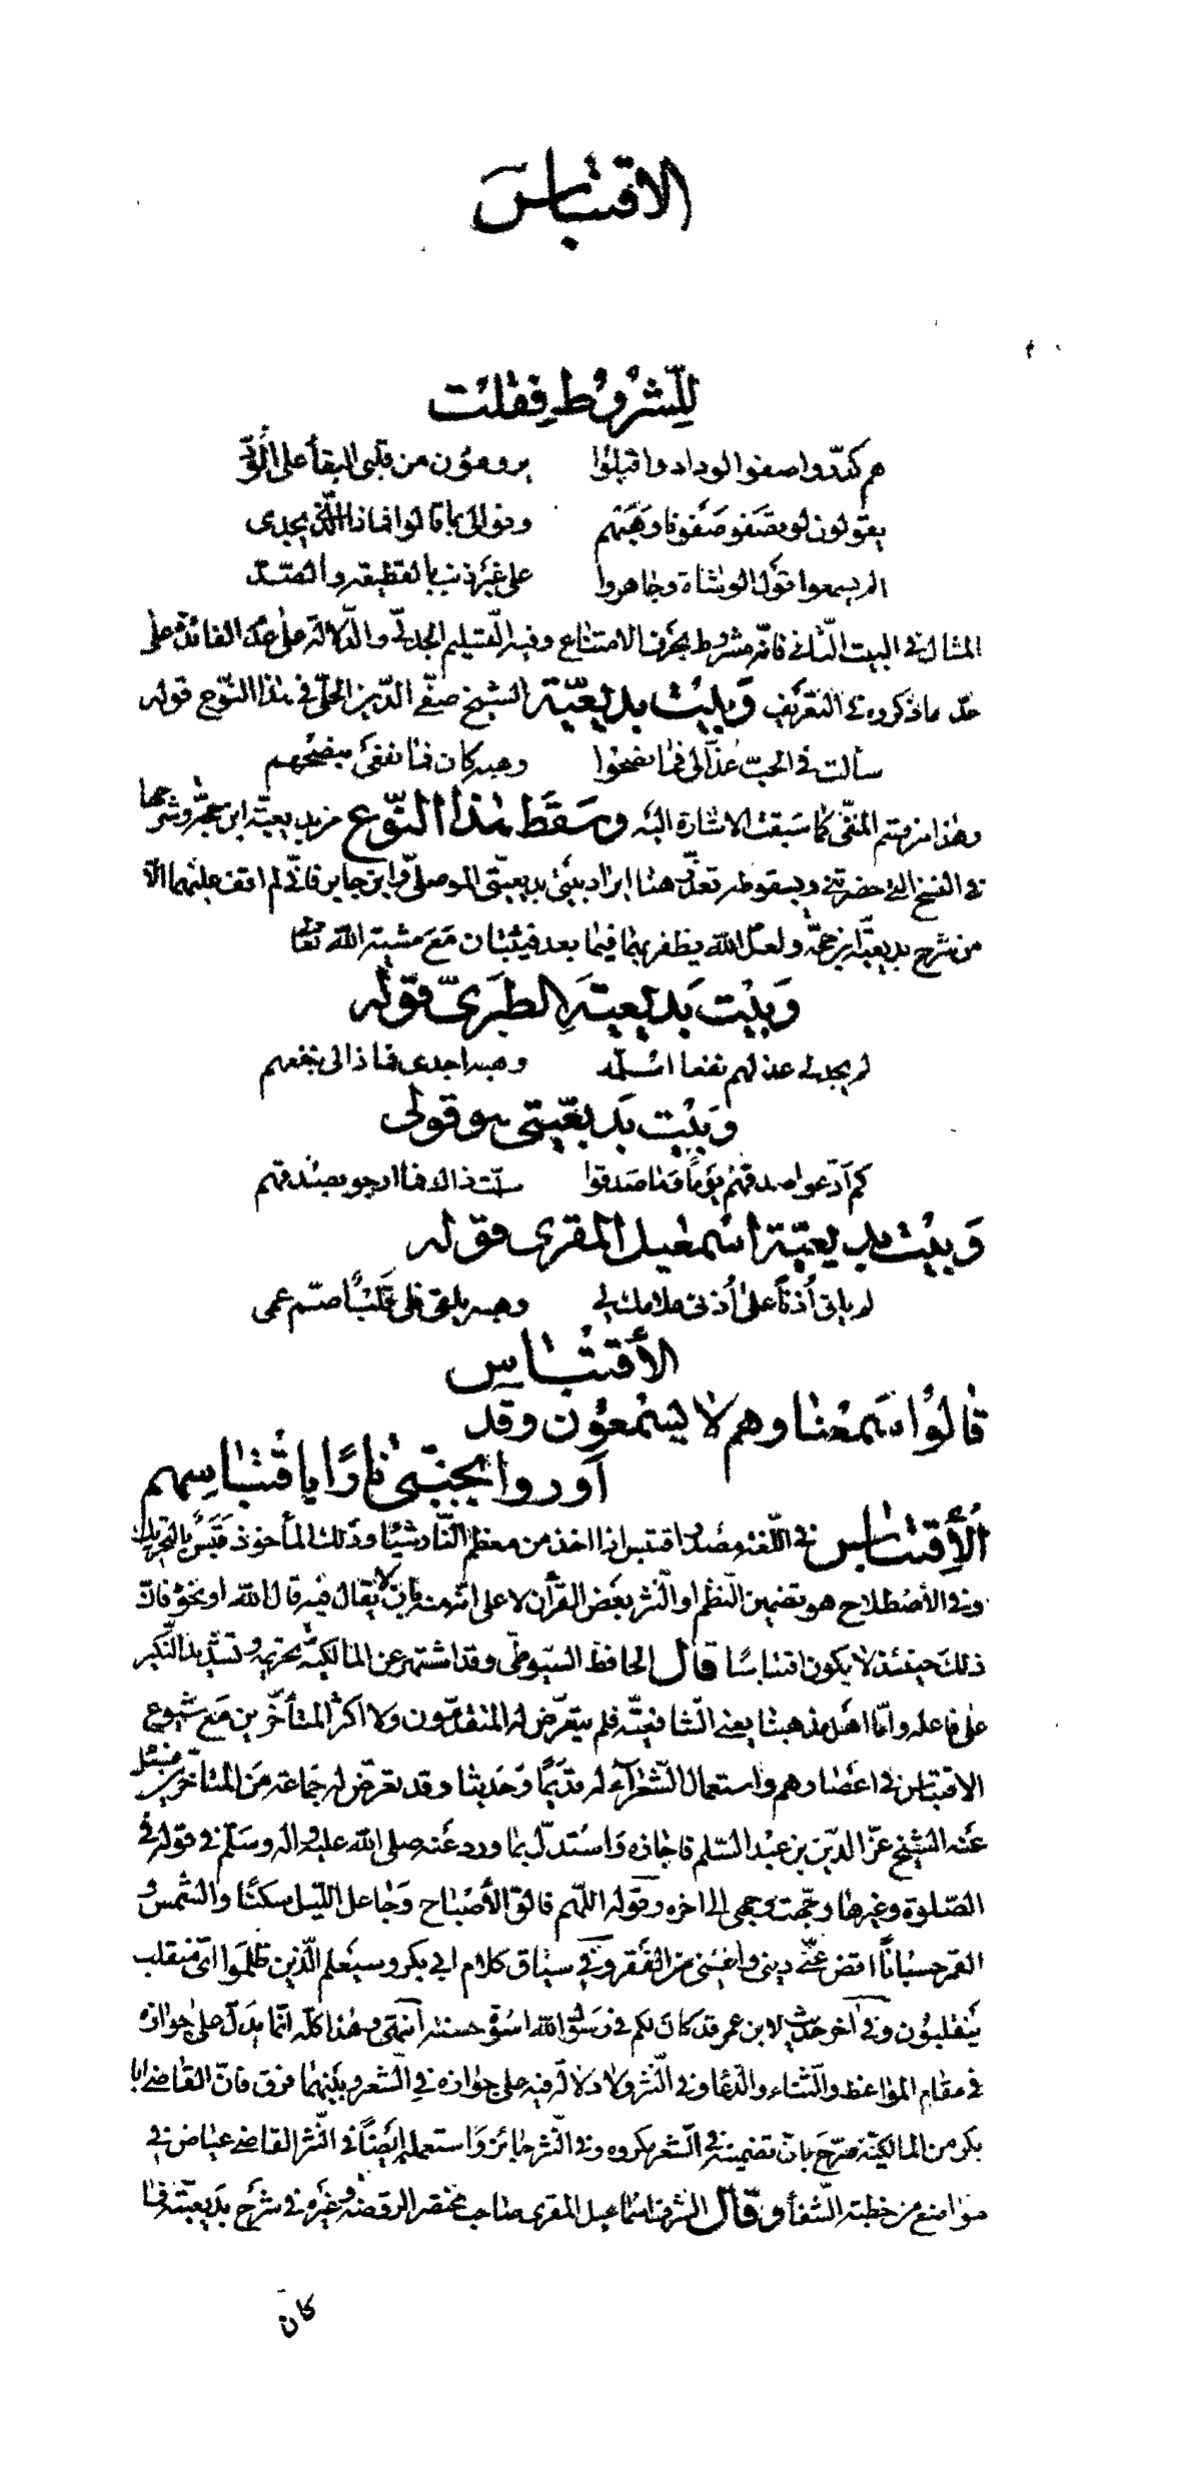 الاقتباس
للشروط فقلت
هم كدّروا صفو الوداد واقبلوا يرومون من قلبي البقأ على الودّ
يقولون لو يصفو صفونا وهبهم ونوالي بما قالوا فماذا الّذي يجدي
الم يسمعوا قول الوشاة وجاهروا على غير ذنب بالقطيعة والصّدّ
المثال في البيت الثّاني فانّه مشروط بحرف الامتناع وفيه التّسليم الجدلي والدّلالة على عدم الفائدة على
حدّ ما ذكروه في التعريف وبيت بديعيّة الشيخ صفيّ الدّين الحلّي في هذا النّوع قوله
سألت في الحبّ عذّالي فما نصحوا وهبه كان فما نفعي بنصحهم
وهذا من قسم المنفي كما سبقت الاشارة اليه وسقط هذا النّوع من بديعيّة ابن حجّة وشرحها
في النسخ التي حضرتني وبسقوطه تعذّر هنا ايراد بيتي بديعيّتي الموصلي وابن جابر فانّي لم اقف عليهما الّا
من شرح بديعيّة ابن حجّة ولعلّ الله يظفر بهما فيما بعد فيثبتان مع مشيّة الله تعالى
وبيت بديعيّة الطبريّ قوله
لم يجد لي عذلهم نفعا اسلّمه وهبه اجدى فماذا لي بنفعهم
وبيت بديعيّتي هو قولي
كم ادّعوا صدقهم يوماً وما صدقوا سلّمت ذاك فما ارجو بصدقهم
وبيت بديعيّة اسمعيل المقري قوله
لم يلق اُذناً على اُذني ملامك لي وهبه يلقى فلي قلبٌ اصمّ عمي
الأقتباس
قالوا سمعنا وهم لا يسمعون وقد
أوروا بجنبيّ نارًا باقتباسهم
الأقتباس في اللّغة مصدر اقتبس اذا اخذ من معظم النّار شيئا وذلك المأخوذ قبس بالتحريك
وفي الأصطلاح هو تضمين النظم او النّثر بعض القرأن لا على انّه منه بان لا يقال فيه قال الله او نحوه فانّ
ذلك حينئذ لا يكون اقتباسًا قال الحافظ السّيوطي وقد اشتهر عن المالكيّة تحريمه وتشديد النّكير
على فاعله وامّا اهل مذهبنا يعني الشّافعيّة فلم يتعرّض له المتقدّمون ولا اكثر المتأخّرين مع شيوع
الاقتباس في اعصارهم واستعمال الشّعرآء له قديمًا وحديثا وقد تعرّض له جماعة من المتأخّرين فسئل
عنه الشيخ عزّ الدّين بن عبد السّلم فاجازه واستدلّ بما ورد عنه صلى الله عليه واله وسلّم في قوله في
الصّلوة وغيرها وجّهت وجهي الى اخره وقوله اللّهم فالق الأصباح وجاعل اللّيل سكنًا والشّمس و
القمر حسبانًا اقض عنّي ديني واغنني من الفقر وفي سياق كلام ابي بكر وسيعلم الّذين ظلموا ايّ منقلب
ينقلبون وفي اخر حديث لابن عمر قد كان لكم في رسول الله اسوة حسنة انتهى وهذا كلّه انّما يدلّ على جوازه
في مقام المواعظ والثّناء والدّعاء وفي النّثر ولا دلالة فيه على جوازه في الشّعر وبينهما فرق فانّ القاضي ابا
بكر من المالكيّة صرّح بانّ تضمينه في الشّعر مكروه وفي النّثر جائز واستعمله ايضًا في النّثر القاضي عياض في
مواضع من خطبة الشّفأ وقال الشرف اسماعيل المقري صاحب مختصر الروضة وغيره في شرح بديعيّته ما
كان